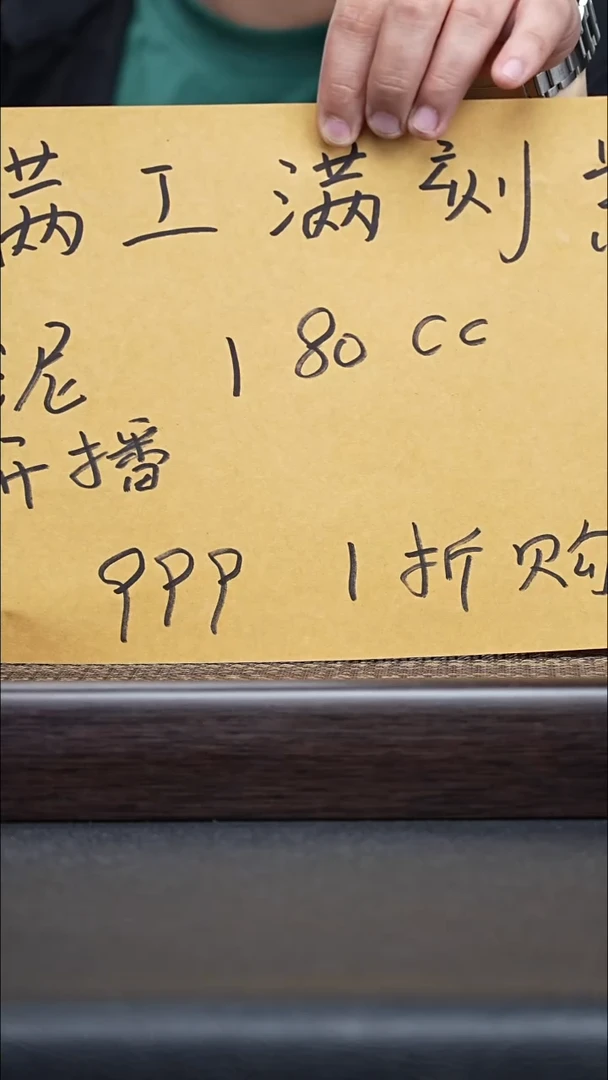 满工满刻
泥 180cc
开播
999 1折购